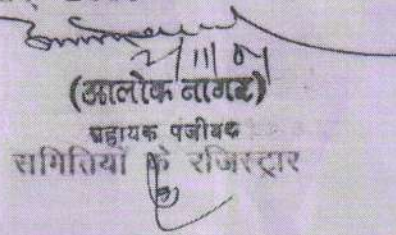 (आलोक नागर)
सहायक पंजीयक
समितियों के रजिस्ट्रार